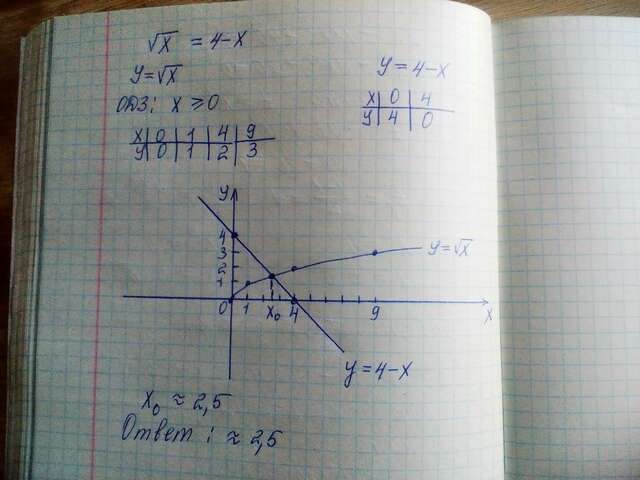 √x = 4-x
y=√x
ОДЗ: x ≥ 0
x 0 1 4 9
y 0 1 2 3
y = 4-x
x 0 4
y 4 0
y
4
3
2
1
0 1 x₀ 4 9 x
y=√x
y = 4-x
x₀ ≈ 2,5
Ответ: ≈ 2,5